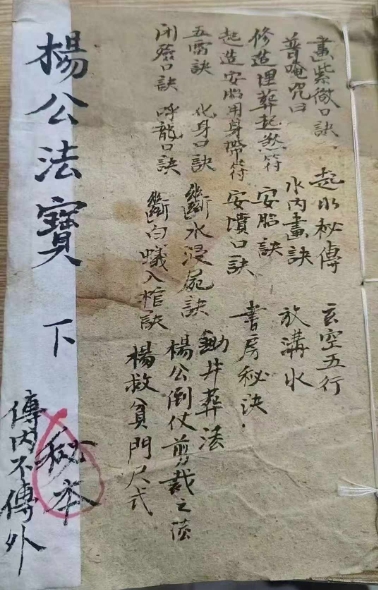 畫紫微口訣 起水秘傳 玄空五行
普唵咒曰 水內畫訣 放溝水
修造埋葬起煞符 安胎訣 書房秘决.
起造安胎用身帶符 安墳口訣
五雷訣 化身口訣 斷水浸屍訣 葬法
口訣 呼龍口訣 斷白蟻入棺訣 楊公倒仗剪裁之法
楊救貧門尺式
楊公法寶 下
秘本
傳內不傳外